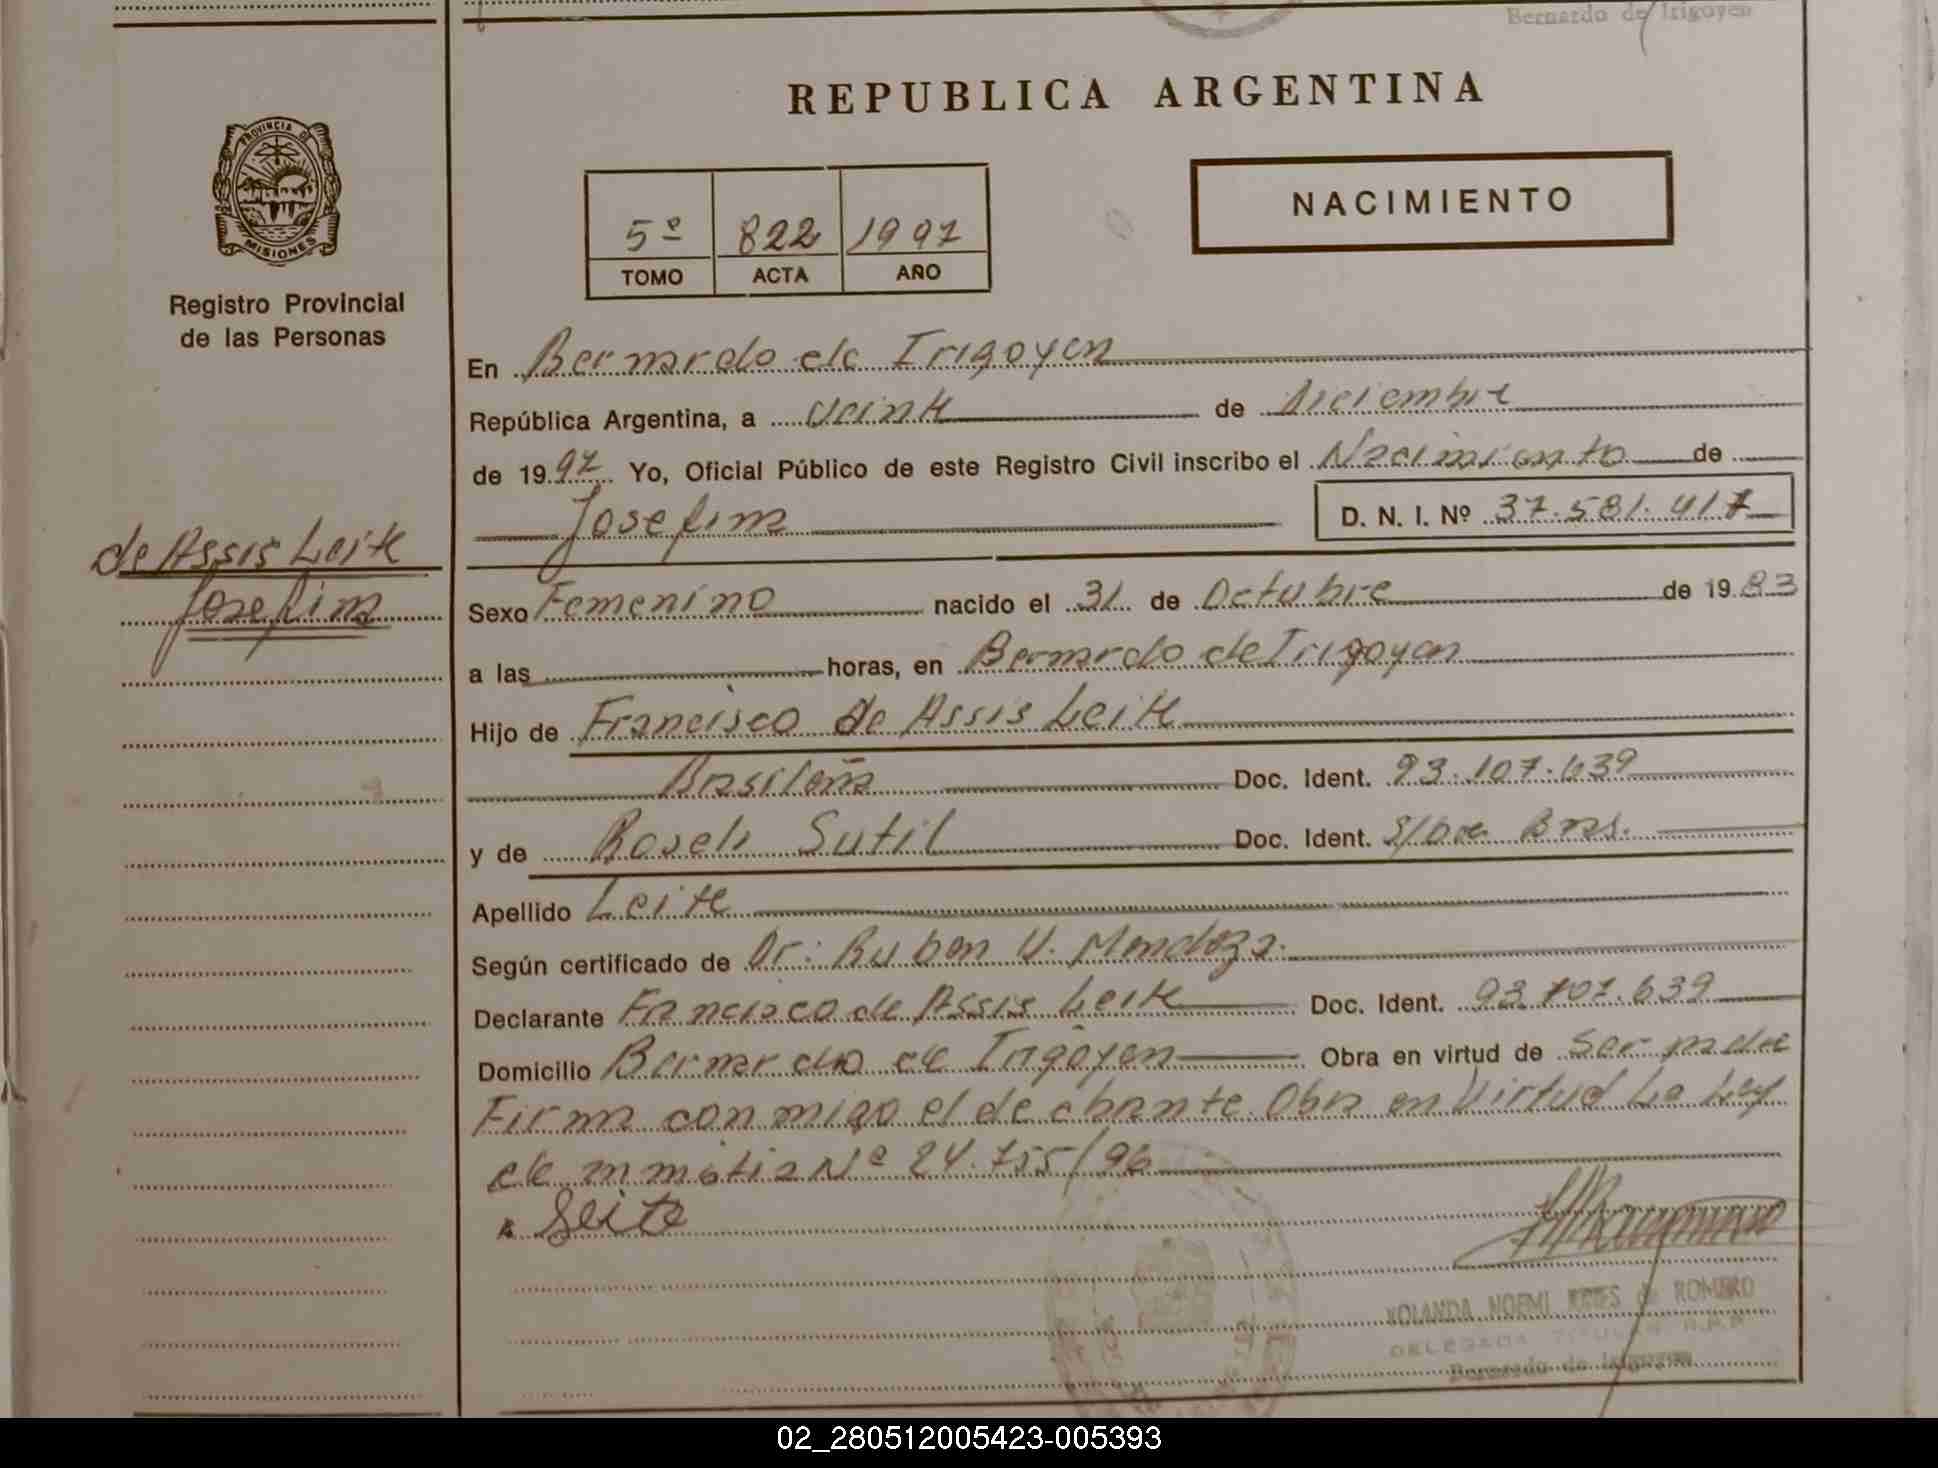 Bernardo de Irigoyen
REPUBLICA ARGENTINA
PROVINCIA DE
MISIONES
Registro Provincial
de las Personas
5º 822 1997
TOMO ACTA AÑO
NACIMIENTO
En Bernardo de Irigoyen
República Argentina, a veinte de Diciembre
de 1997 Yo, Oficial Público de este Registro Civil inscribo el Nacimiento de
Josefina D. N. I. Nº 37.581.417
de Assis Leite
Josefina
Sexo Femenino nacido el 31 de Octubre de 1983
a las horas, en Bernardo de Irigoyen
Hijo de Francisco de Assis Leite
Brasileña Doc. Ident. 93.107.639
y de Roseli Sutil Doc. Ident. S/Doc Bras.
Apellido Leite
Según certificado de Dr: Ruben V. Mendoza.
Declarante Francisco de Assis Leite Doc. Ident. 93.107.639
Domicilio Bernardo de Irigoyen Obra en virtud de Ser padre
Firma conmigo el declarante. Obra en Virtud La Ley
de amnistia Nº 24.755/96
Leite
YOLANDA NOEMI de ROMERO
DELEGADA TITULAR R.P.P.
Bernardo de Irigoyen
02_280512005423-005393